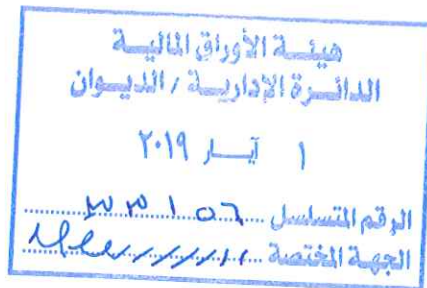 هيئة الأوراق المالية
الدائرة الإدارية / الديوان
١ آيار ٢٠١٩
الرقم المتسلسل ٣٣١٥٦
الجهة المختصة